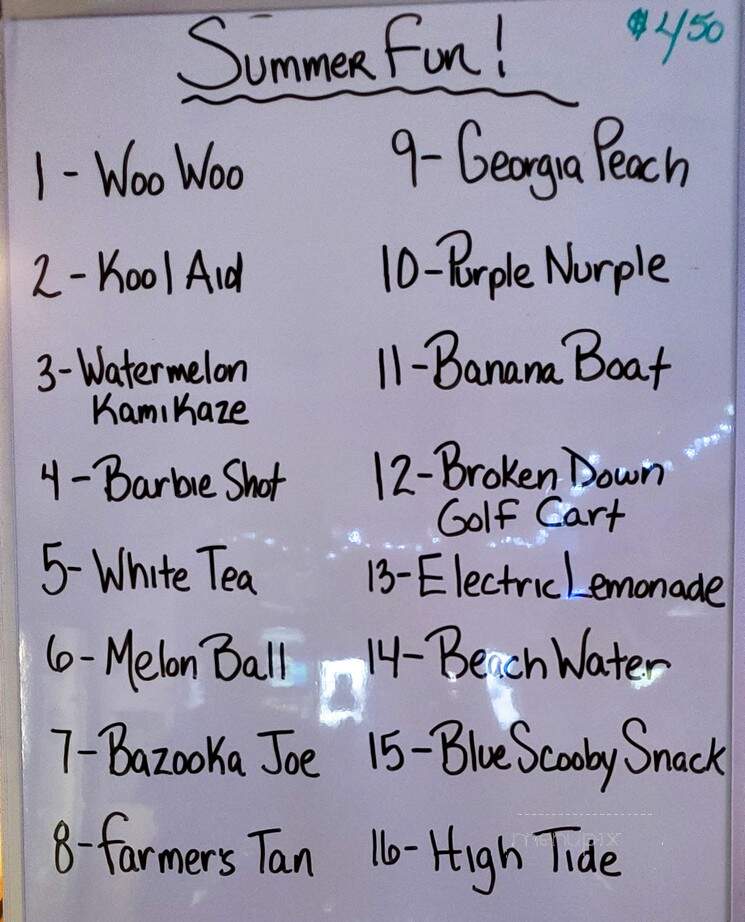 Summer Fun!
$4/50
1 - Woo Woo
2 - Kool Aid
3 - Watermelon
Kamikaze
4 - Barbie Shot
5 - White Tea
6 - Melon Ball
7 - Bazooka Joe
8 - Farmer's Tan
9 - Georgia Peach
10 - Purple Nurple
11 - Banana Boat
12 - Broken Down
Golf Cart
13 - Electric Lemonade
14 - Beach Water
15 - Blue Scooby Snack
16 - High Tide
menupix